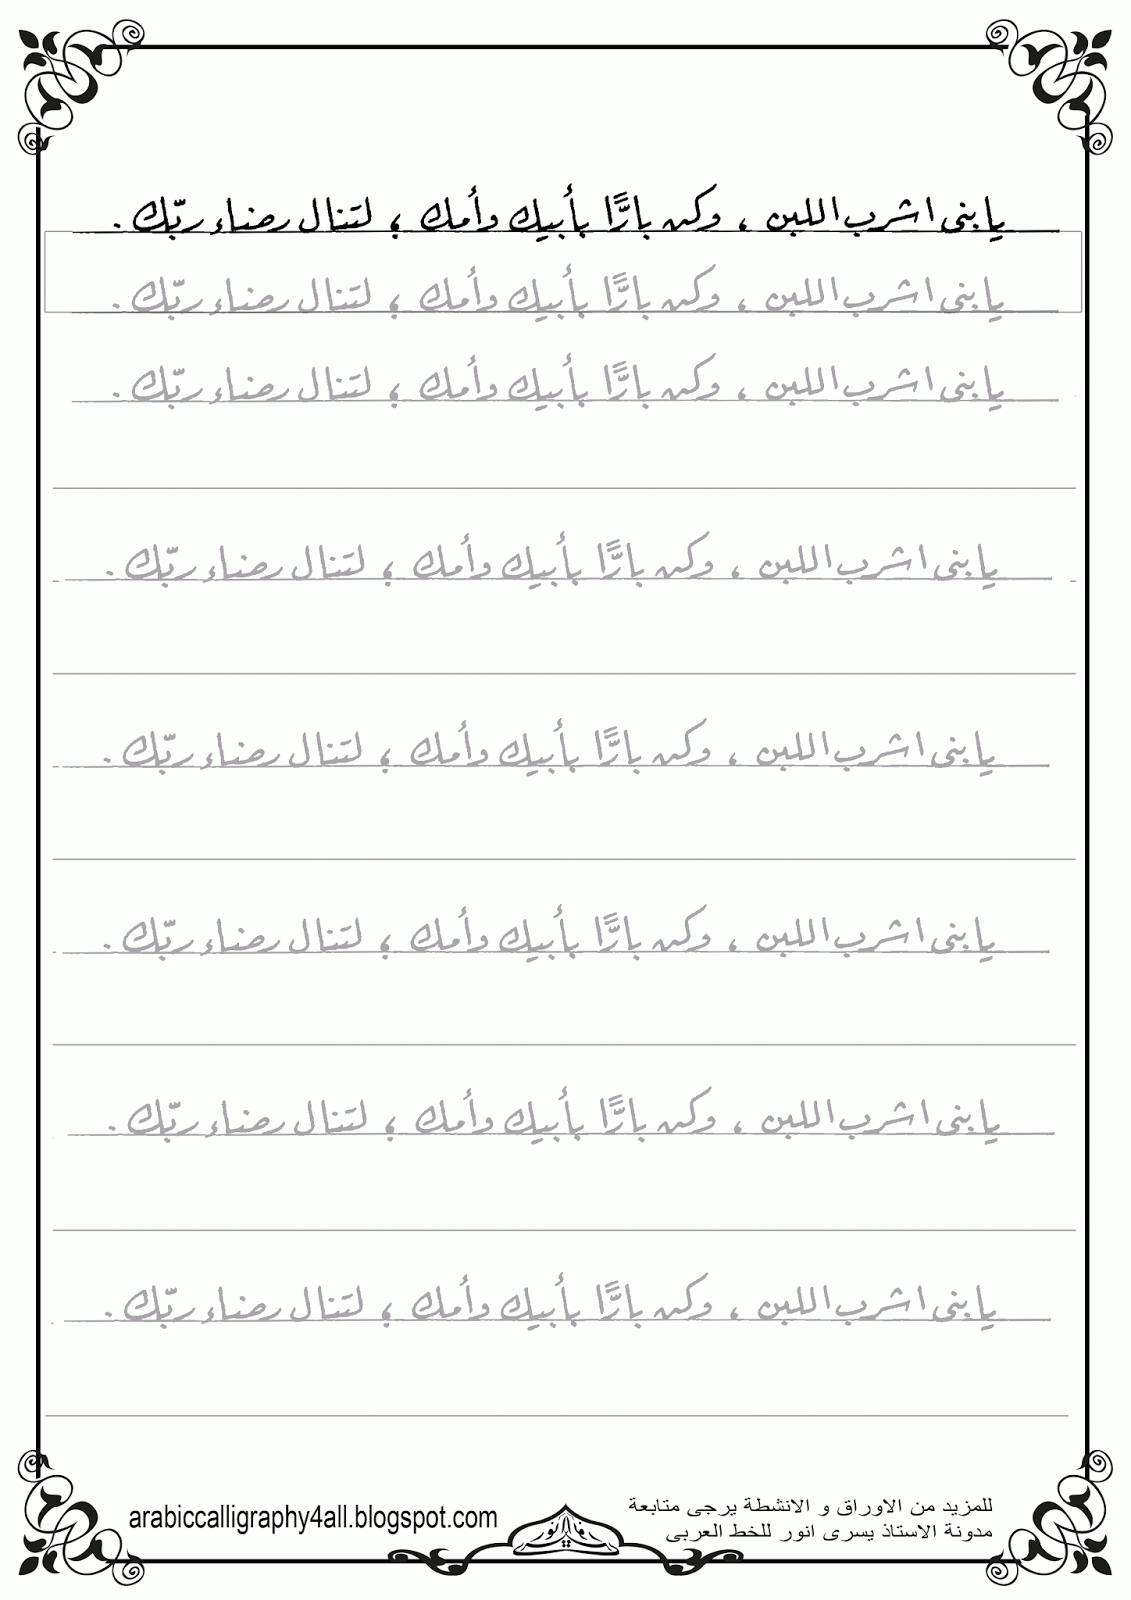 يا بنى اشرب اللبن ، وكن بارًّا بأبيك وأمك ؛ لتنال رضاء ربّك .
يا بنى اشرب اللبن ، وكن بارًّا بأبيك وأمك ؛ لتنال رضاء ربّك .
يا بنى اشرب اللبن ، وكن بارًّا بأبيك وأمك ؛ لتنال رضاء ربّك .
يا بنى اشرب اللبن ، وكن بارًّا بأبيك وأمك ؛ لتنال رضاء ربّك .
يا بنى اشرب اللبن ، وكن بارًّا بأبيك وأمك ؛ لتنال رضاء ربّك .
يا بنى اشرب اللبن ، وكن بارًّا بأبيك وأمك ؛ لتنال رضاء ربّك .
يا بنى اشرب اللبن ، وكن بارًّا بأبيك وأمك ؛ لتنال رضاء ربّك .
يا بنى اشرب اللبن ، وكن بارًّا بأبيك وأمك ؛ لتنال رضاء ربّك .
للمزيد من الاوراق و الانشطة يرجى متابعة
مدونة الاستاذ يسرى انور للخط العربى
arabiccalligraphy4all.blogspot.com